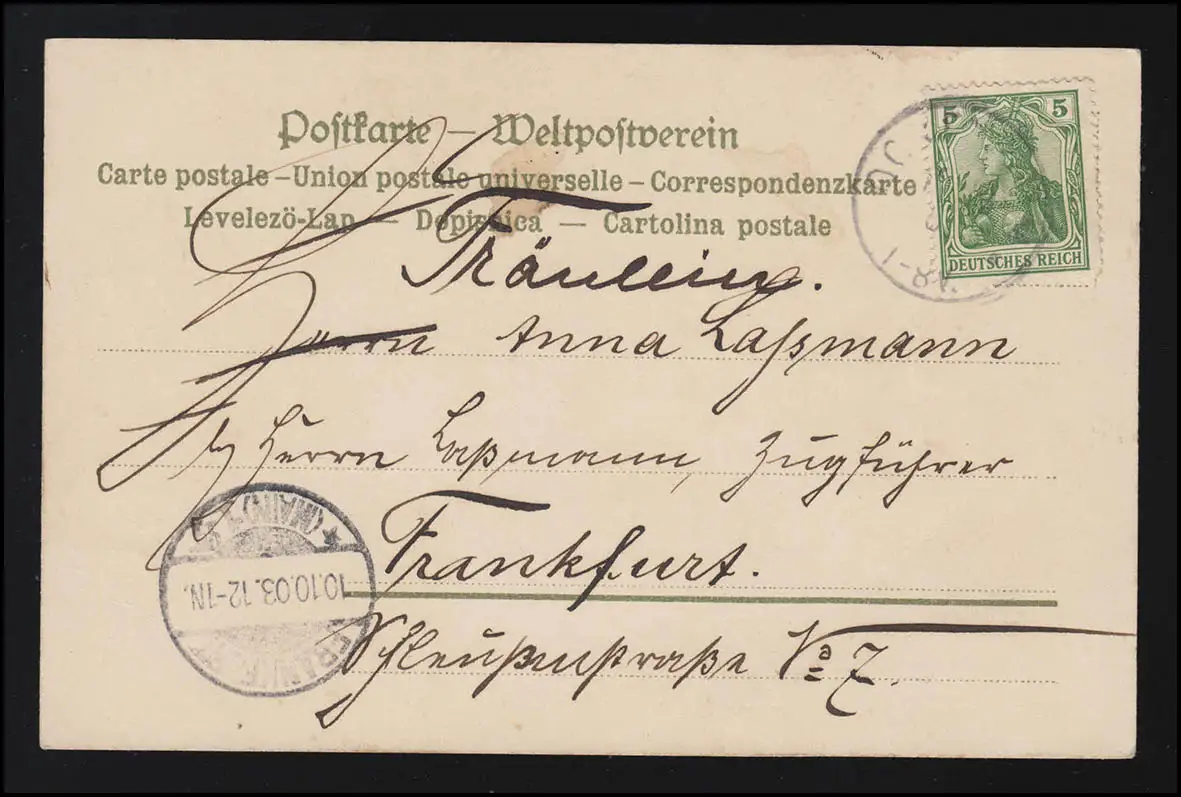 Postkarte – Weltpostverein
Carte postale – Union postale universelle – Correspondenzkarte
Levelezö-Lap — Dopisnica — Cartolina postale
5 5
DEUTSCHES REICH
Fräulein.
Herrn Anna Laßmann
Herrn Laßmann, Zugführer
Frankfurt.
Schleußenstraße No 7.
(MAIN)
10.10.03. 12-1N.
FRANKF